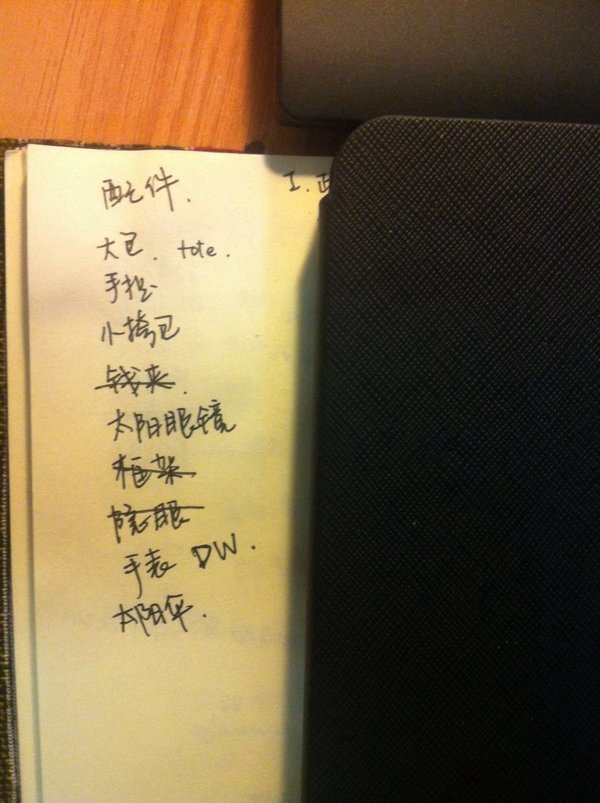 配件. I.
大包. tote.
手拉
小挎包
钱夹.
太阳眼镜
框架
隐眼
手表 DW.
太阳伞.